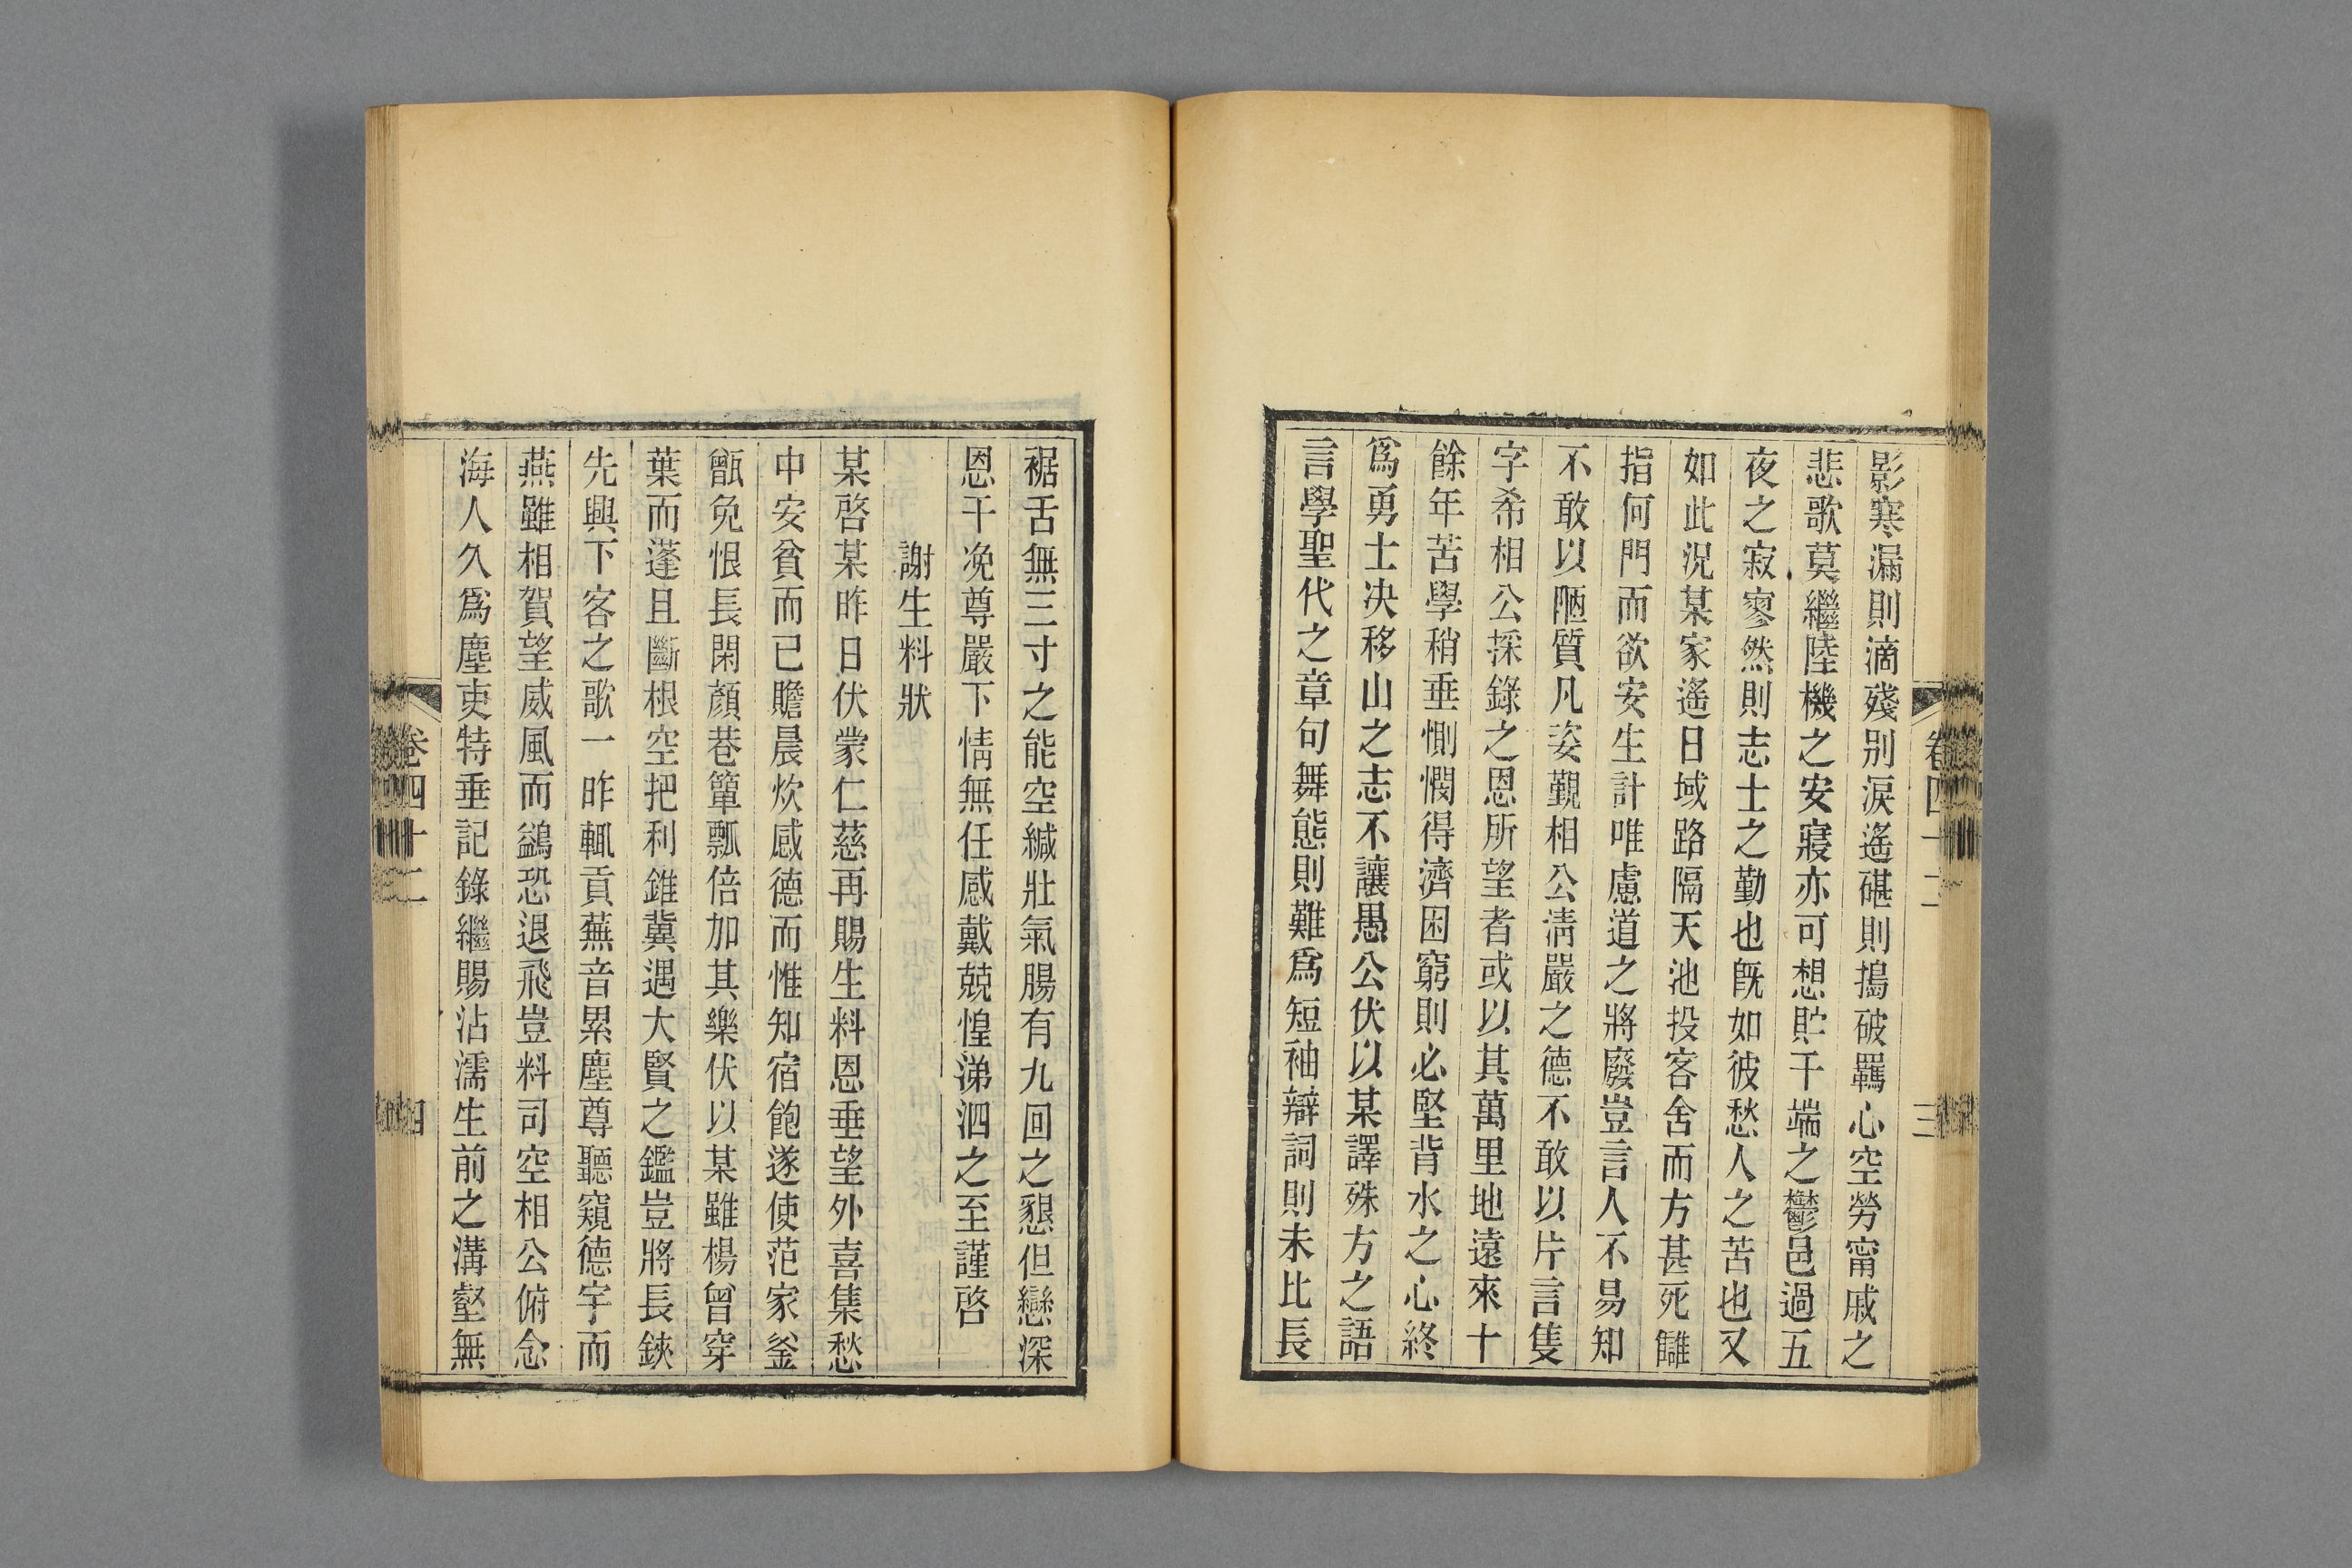 影寒漏則滴殘別淚遙碪則搗破羈心空勞甯戚之
悲歌莫繼陸機之安寢亦可想貯千端之鬱邑過五
夜之寂寥然則志士之勤也旣如彼愁人之苦也又
如此況某家遙日域路隔天池投客舍而方甚死讎
指何門而欲安生計唯慮道之將廢豈言人不易知
不敢以陋質凡姿覲相公淸嚴之德不敢以片言隻
字希相公採錄之恩所望者或以其萬里地遠來十
餘年苦學稍垂惻憫得濟困窮則必堅背水之心終
爲勇士决移山之志不讓愚公伏以某譯殊方之語
言學聖代之章句舞態則難爲短袖辯詞則未比長
卷四十二
三
裾舌無三寸之能空緘壯氣腸有九回之懇但戀深
恩干冼尊嚴下情無任感戴兢惶涕泗之至謹啓
謝生料狀
某啓某昨日伏蒙仁慈再賜生料恩垂望外喜集愁
中安貧而已贍晨炊感德而惟知宿飽遂使范家釜
甑免恨長閑顏巷簞瓢倍加其樂伏以某雖楊曾穿
葉而蓬且斷根空把利錐冀遇大賢之鑑豈將長鋏
先興下客之歌一昨輒貢蕪音累塵尊聽窺德宇而
燕雖相賀望威風而鷁恐退飛豈料司空相公俯念
海人久爲塵吏特垂記錄繼賜沾濡生前之溝壑無
卷四十二
四